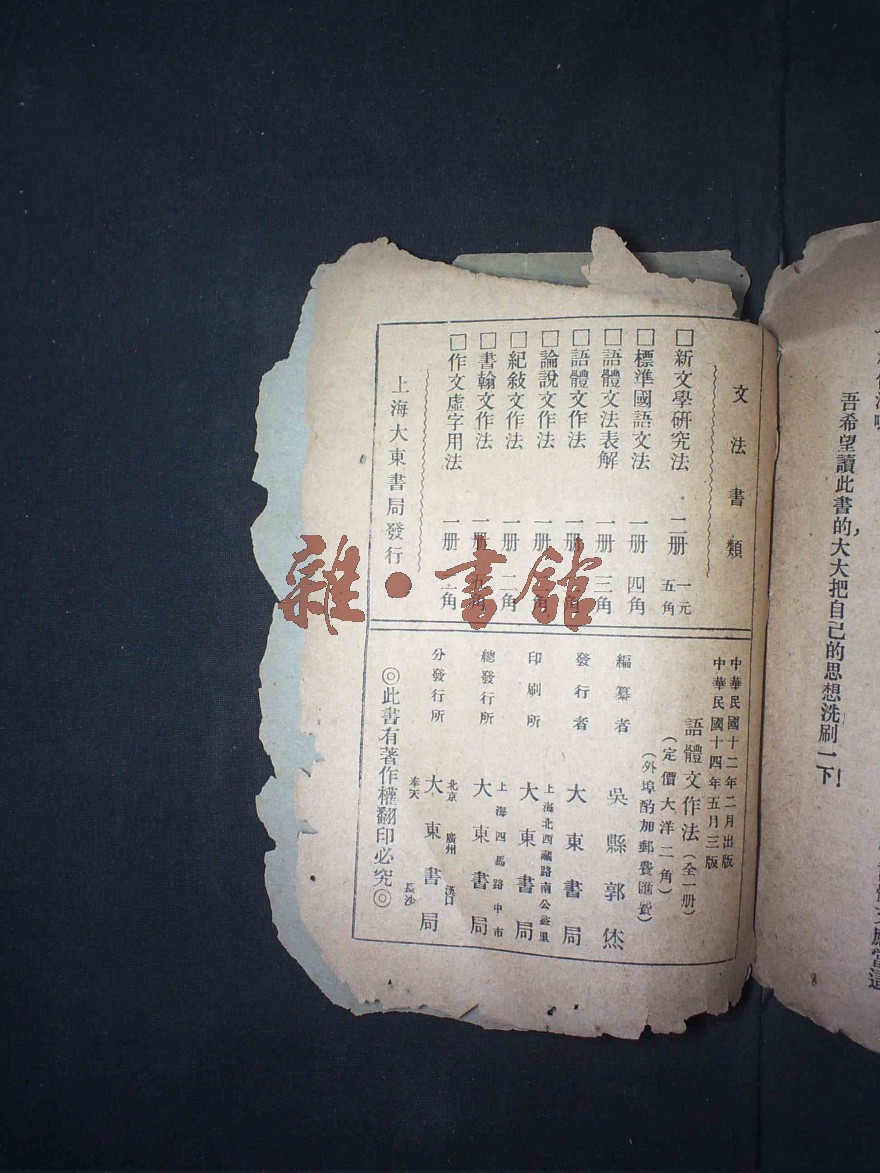 吾希望讀此書的大大把自己的思想洗刷一下!
文法書類
□新文學研究法 二册 一元五角
□標準國語文法 一册 四角
□語體文法表解 一册 三角
□語體文作法 一册 角
□論說文作法 一册 角
□紀敍文作法 一册 二角
□書翰文作法 一册 角
□作文虛字用法 一册 角
上海大東書局發行
中華民國十二年二月出版
中華民國十四年五月三版
語體文作法(全一册)
(定價大洋二角)
(外埠酌加郵費匯費)
編纂者 吳縣郭
發行者 大東書局
印刷所 上海北西藏路南公益里 大東書局
總發行所 上海四馬路中市 大東書局
分發行所 北京 廣州 漢口 奉天 長沙 大東書局
◎此書有著作權翻印必究◎
雜·書館